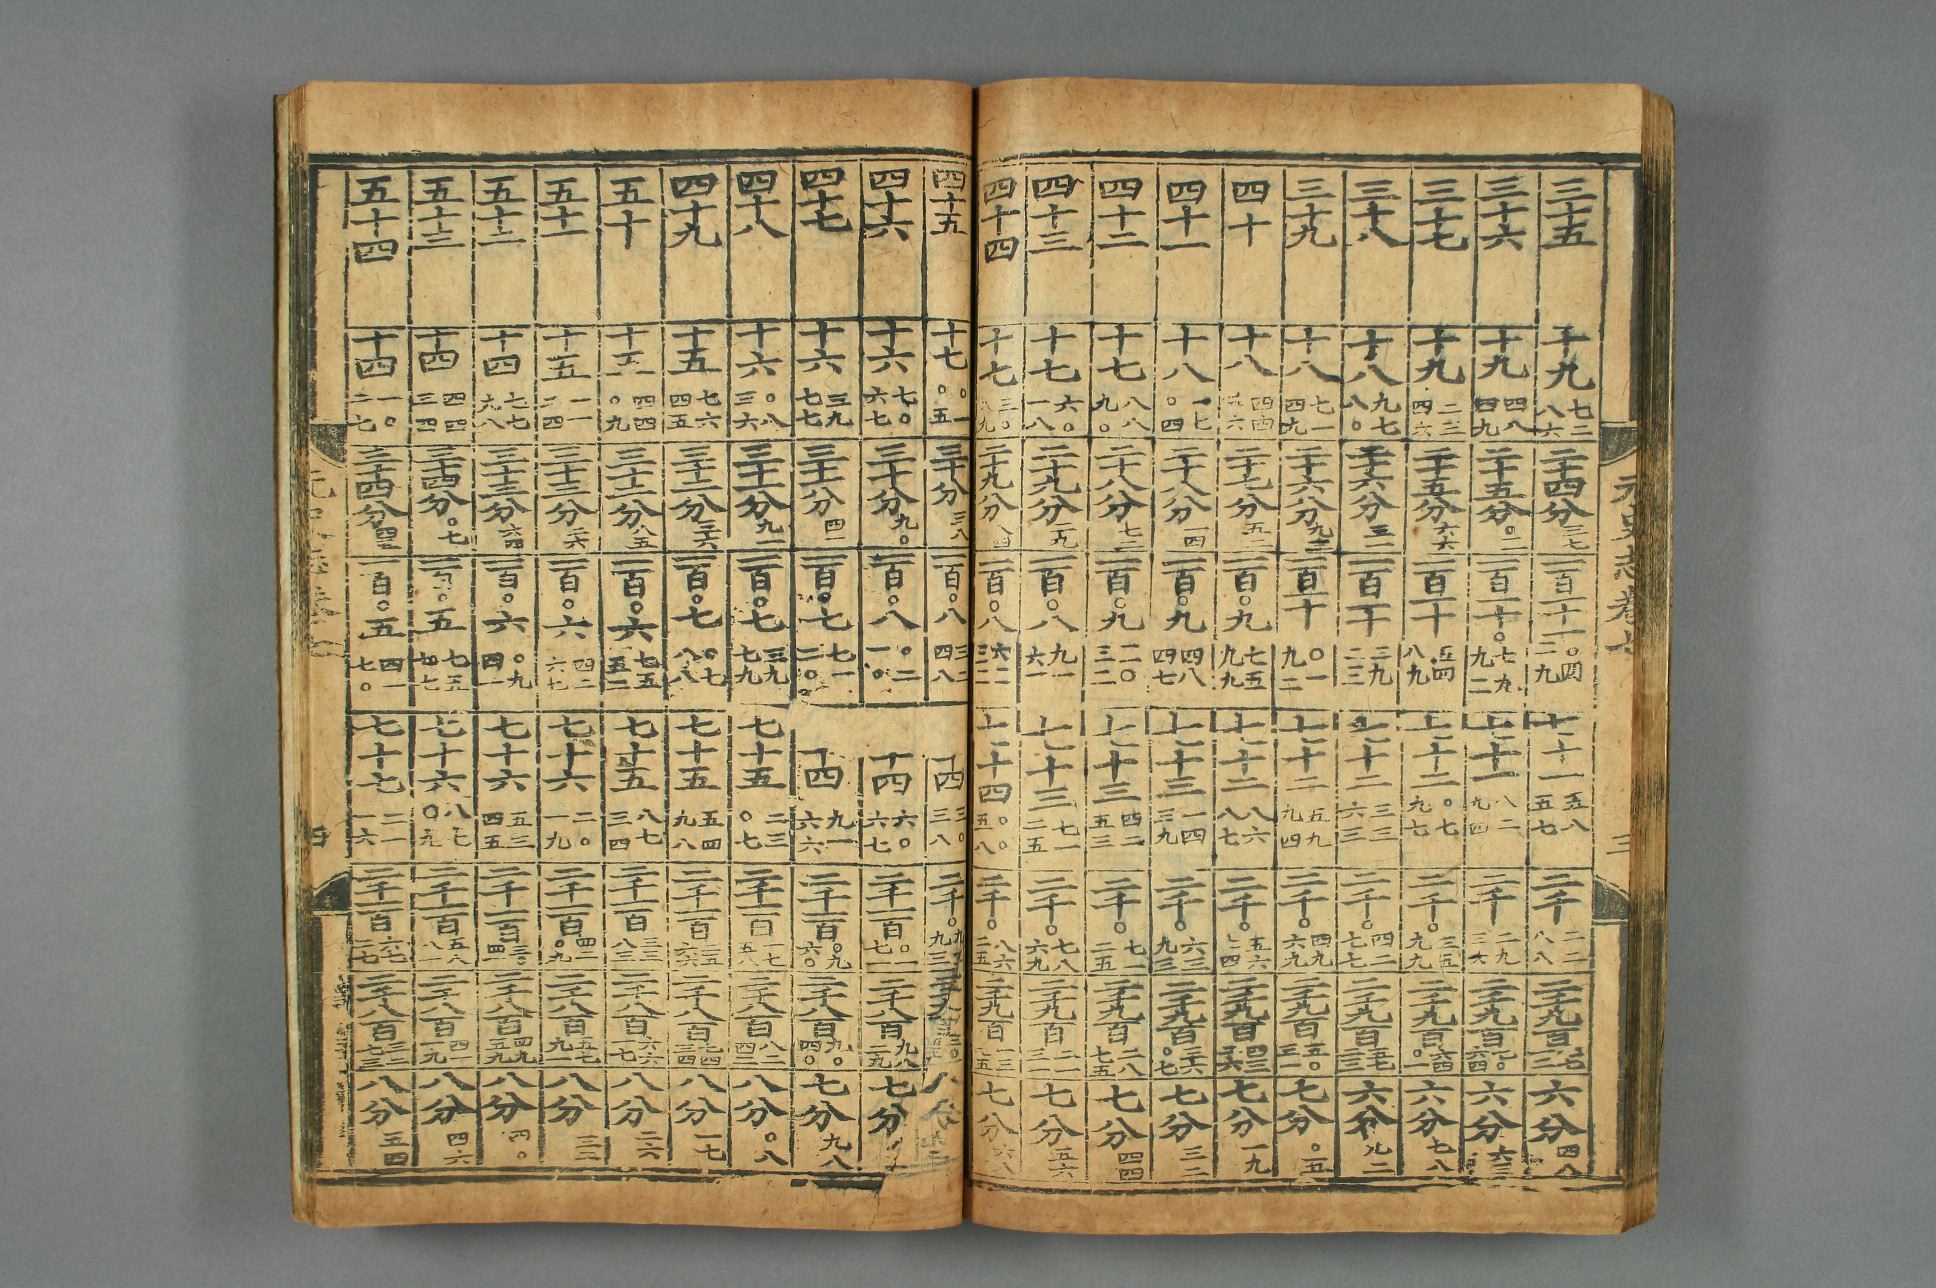 元史志卷七 三
三十五 十九 七二八六 二十四分 三七 一百一十一 〇四二九 七十一 五八五七 二千 二二八八 二千九百 六分 四八
三十六 十九 四八四九 二十五分 〇二 一百一十〇 七九九二 七十一 八二九四 二千 二九三六 二千九百 六分 六三
三十七 十九 二三四六 二十五分 六六 一百一十 五四八九 七十二 〇七九七 二千〇 三五九九 二千九百 六分 七八
三十八 十八 九七八〇 二十六分 三二 一百一十 三九二三 七十二 三三六三 二千〇 四二七七 二千九百 六分 九二
三十九 十八 七一四九 二十六分 九二 一百一十 〇一九二 七十二 五九九四 二千〇 四九六九 二千九百 五〇三一 七分 〇五
四十 十八 四四九六 二十七分 五 一百〇九 七五九九 七十二 八六八七 二千〇 五六 二千九百 七分 一九
四十一 十八 一七〇四 二十八分 一四 一百〇九 四八四七 七十三 一四三九 二千〇 六三九三 二千九百 二六〇七 七分 三二
四十二 十七 八八九〇 二十八分 七二 一百〇九 二〇三二 七十三 四二五三 二千〇 七一二五 二千九百 二八七五 七分 四四
四十三 十七 六〇一八 二十九分 二九 一百〇八 九一六一 七十三 七一二五 二千〇 七八六九 二千九百 二一三一 七分 五六
四十四 十七 三〇八九 二十九分 八四 一百〇八 六二三二 七十四 〇〇五八 二千〇 八六二五 二千九百 一三七五 七分 六八
四十五 十七 〇一〇五 三十分 三八 一百〇八 三二四八 十四 三〇三八 二千〇 九三 八分
四十六 十六 七〇六七 三十分 九〇 一百〇八 〇二一〇 十四 六〇六七 二千一百 〇一七一 二千八百 九八二九 七分
四十七 十六 三九七七 三十一分 四一 一百〇七 七一二〇 十四 九一六六 二千一百 〇九六〇 二千八百 九〇四〇 七分 九八
四十八 十六 〇八三六 三十一分 九一 一百〇七 三九七九 七十五 二三〇七 二千一百 一七五八 二千八百 八二四二 八分 〇八
四十九 十五 七六四五 三十二分 三六 一百〇七 〇七八八 七十五 五四九八 二千一百 二五六六 二千八百 七四三四 八分 一七
五十 十五 四四〇九 三十二分 八五 一百〇六 七五五二 七十五 八七三四 二千一百 三三八三 二千八百 六六一七 八分 二六
五十一 十五 一一二四 三十三分 二六 一百〇六 四二六七 七十六 二〇一九 二千一百 四二〇九 二千八百 五七九一 八分 三二
五十二 十四 七七九八 三十三分 六四 一百〇六 〇九四一 七十六 五三四五 二千一百 二千八百 四九五九 八分 四〇
五十三 十四 四四三四 三十四分 〇七 一百〇五 七五七七 七十六 八七〇九 二千一百 五八八一 二千八百 四一一九 八分 四六
五十四 十四 一〇二七 三十四分 一百〇五 四一七〇 七十七 二一一六 二千一百 六七二七 二千八百 三二七三 八分 五四